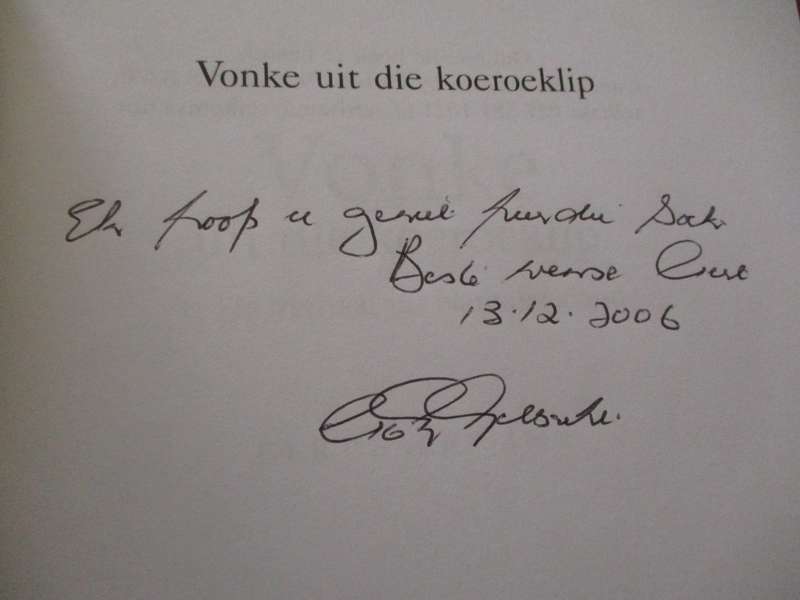 Vonke uit die koeroeklip
Ek hoop u geniet hierdie boek
Beste wense
13.12.2006